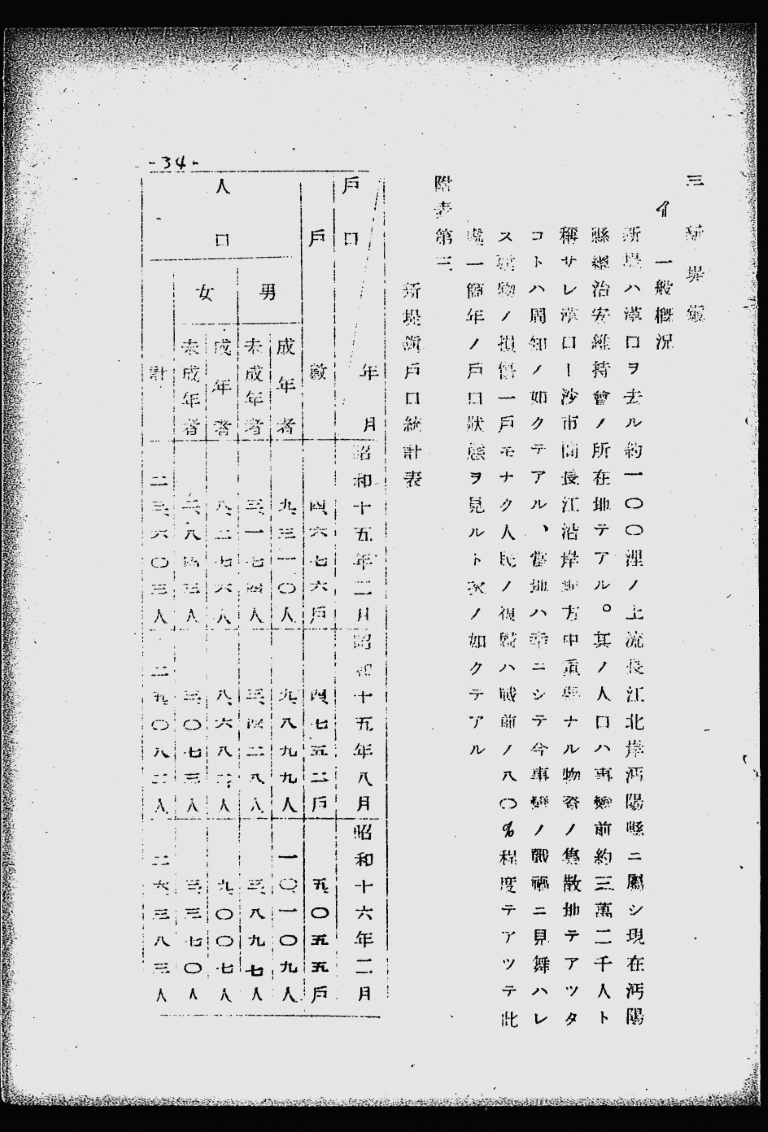 三 新堤鎮
イ 一般概況
新堤ハ漢口ヲ去ル約一〇〇浬ノ上流長江北岸沔陽縣ニ屬シ現在沔陽
縣縣治安維持會ノ所在地テアル。其ノ人口ハ事變前約三萬二千人ト
稱サレ漢口ー沙市間長江沿岸地方中重要ナル物資ノ集散地テアツタ
コトハ周知ノ如クテアル、當地ハ幸ニシテ今事變ノ戰禍ニ見舞ハレ
ス建物ノ損傷一戶モナク人民ノ復歸ハ戰前ノ八〇%程度テアツテ此
處一箇年ノ戶口狀態ヲ見ルト次ノ如クテアル
附表第三
新堤鎮戶口統計表
戶口 年月 昭和十五年二月 昭和十五年八月 昭和十六年二月
戶數 四、六七六戶 四、七五二戶 五、〇五五戶
人口 男 成年者 九、三一〇人 九、八九九人 一〇、一〇九人
未成年者 三、一七四人 三、四二八人 三、八九七人
女 成年者 八、二七六人 八、六八二人 九、〇〇七人
未成年者 二、八四三人 三、〇七三人 三、三七〇人
計 二三、六〇三人 二五、〇八二人 二六、三八三人
-34-